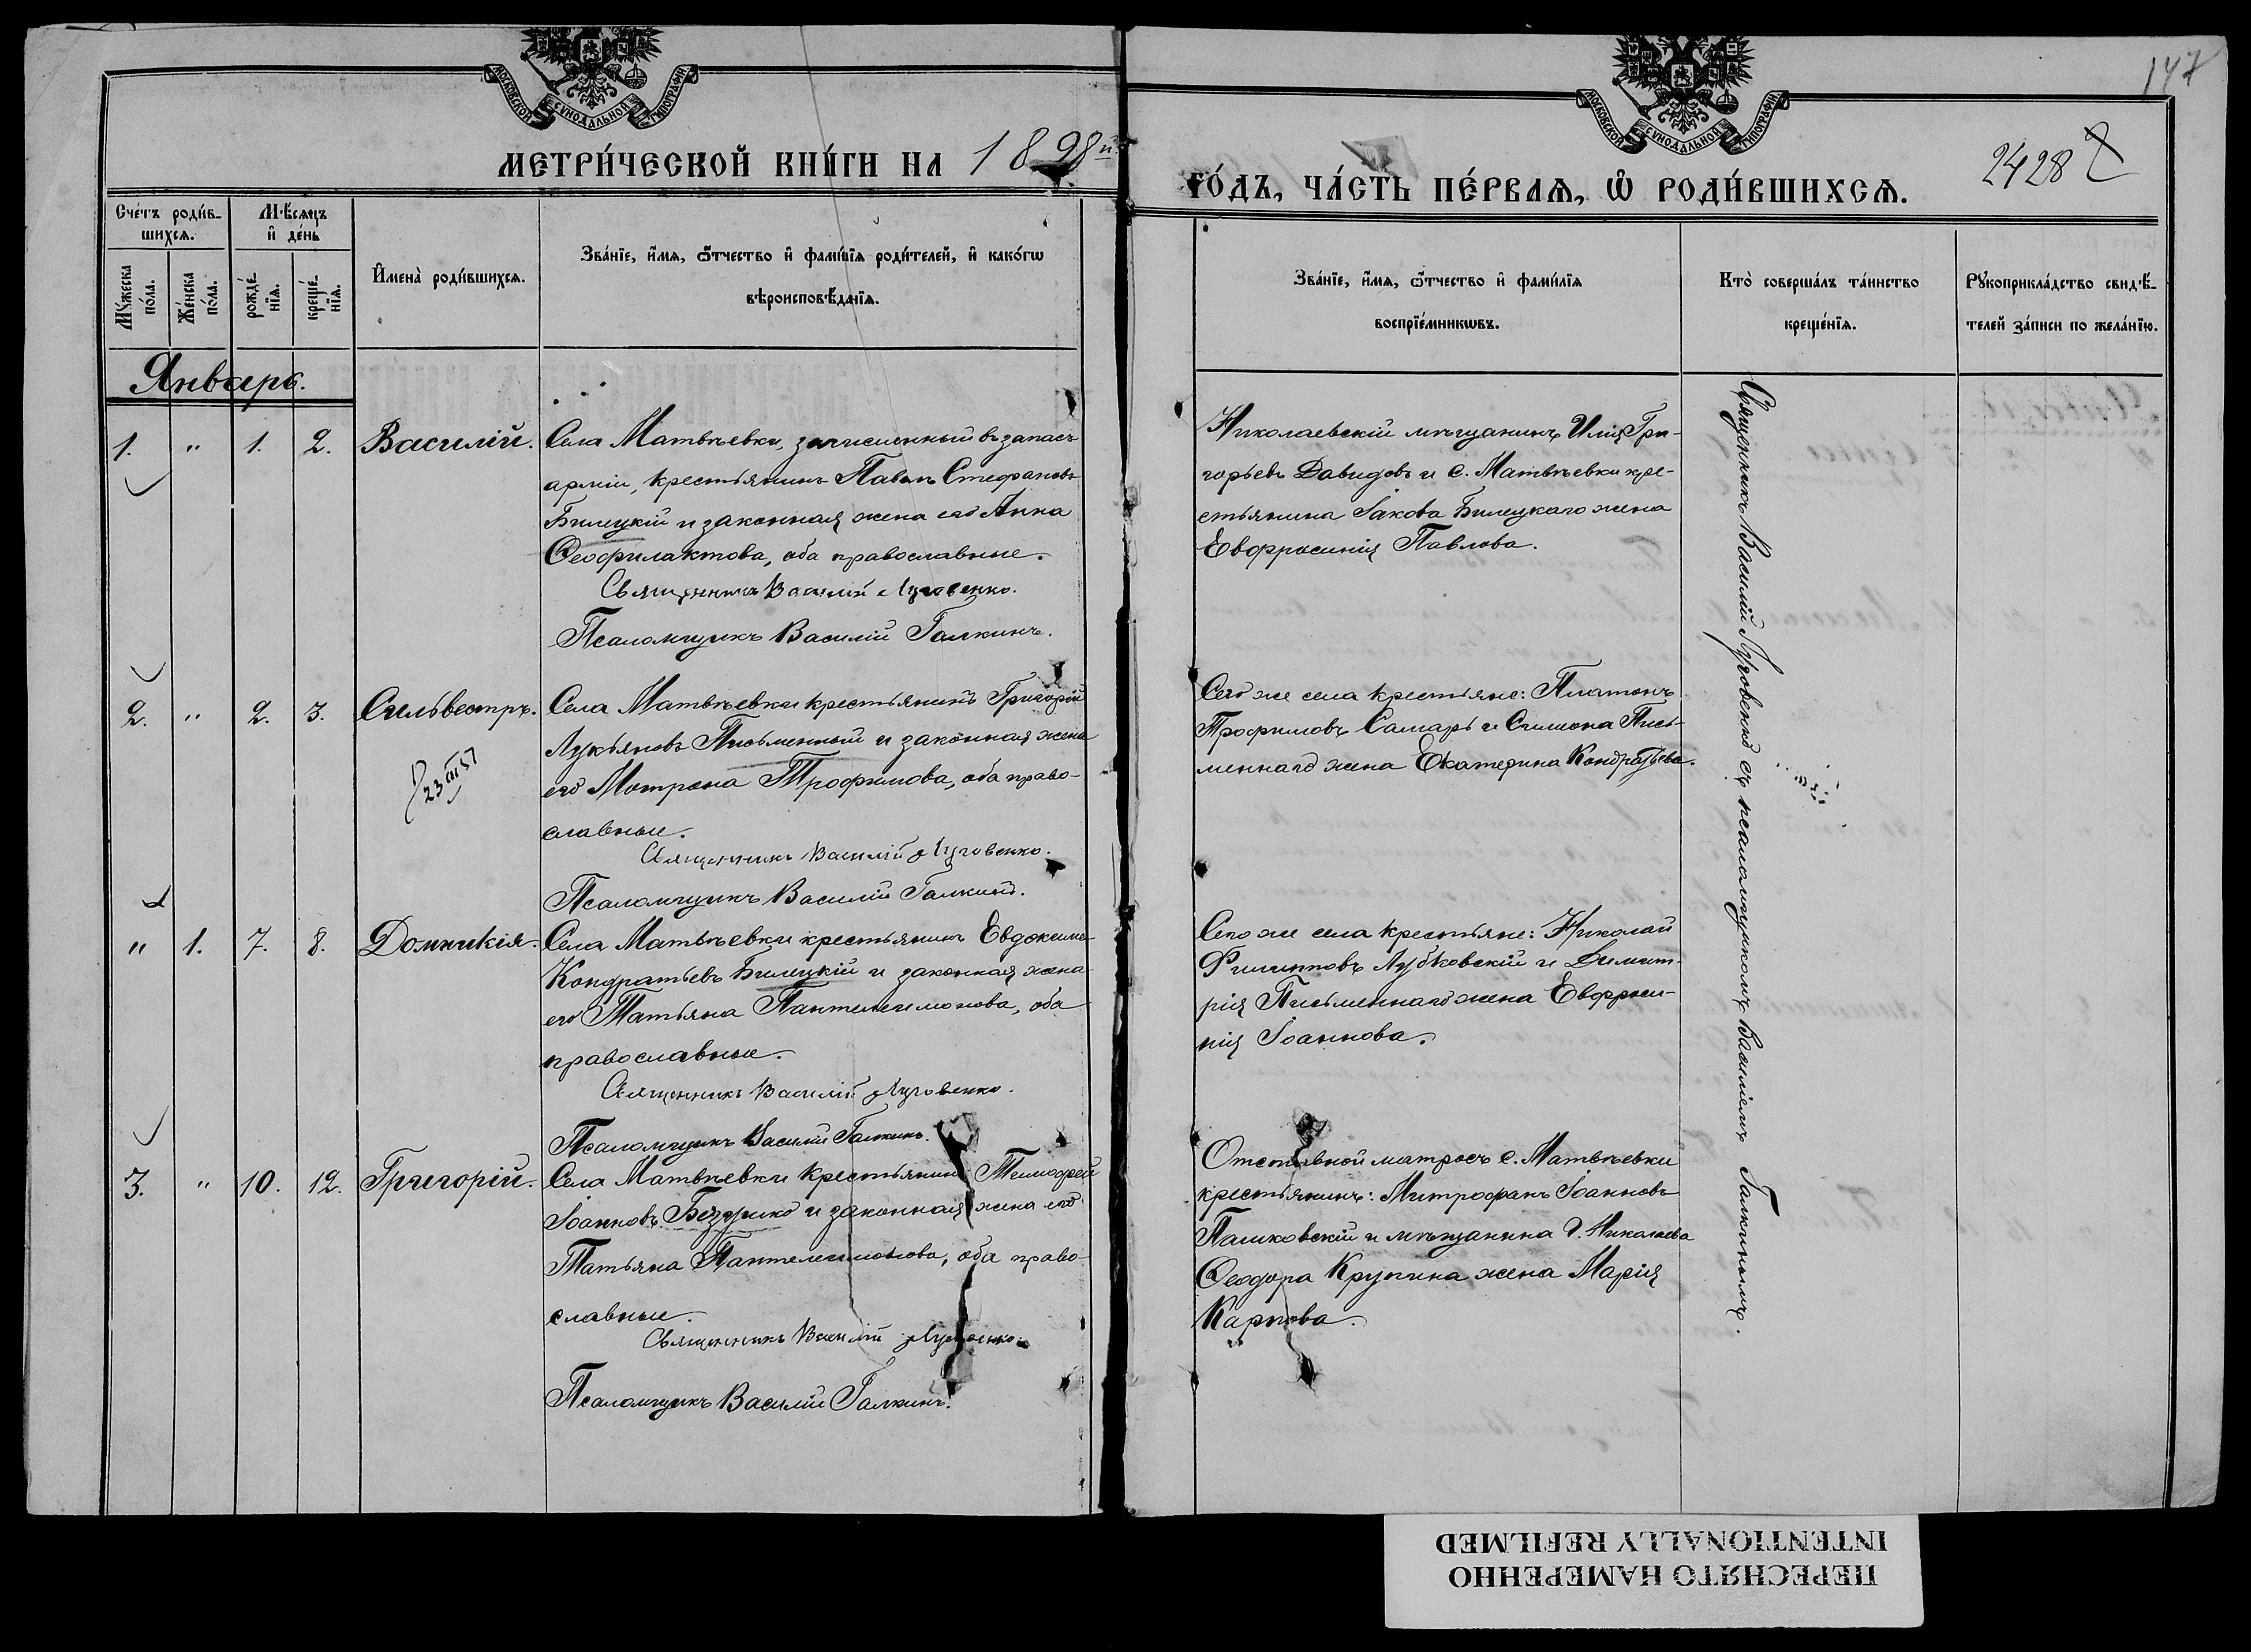 147
МОСКОВСКОЙ СУНОДАЛЬНОЙ ТИПОГРАФІИ
МОСКОВСКОЙ СУНОДАЛЬНОЙ ТИПОГРАФІИ
МЕТРИ́ЧЕСКОЙ КНИ́ГИ НА 1898й
ГО́ДЪ, ЧА́СТЬ ПЕ́РВАѦ, Ѡ҆ РОДИ́ВШИХСѦ.
2428
Сче́тъ роди́в-
шихсѧ.
Мѣ́сѧцъ
и҆ де́нь
Му́жеска
по́ла.
Же́нска
по́ла.
рожде́-
нїѧ.
креще́-
нїѧ.
И҆мена̀ роди́вшихсѧ.
Зва́нїе, и҆́мѧ, ѻ҆́тчество и҆ фами́лїѧ роди́телей, и҆ како́гѡ
вѣроисповѣ́данїѧ.
Зва́нїе, и҆́мѧ, ѻ҆́тчество и҆ фами́лїѧ
воспрїе́мникѡвъ.
Кто̀ соверша́лъ та́инство
креще́нїѧ.
Рукоприкла́дство свидѣ́-
телей за́писи по жела́нїю.
Январь.
1. " 1. 2. Василій.
Села Матвѣевки, зачисленный въ запасъ
арміи, крестьянинъ Павелъ Стефановъ
Билецкій и законная жена его Анна
Ѳеофилактова, оба православные.
Священникъ Василій Луговенко.
Псаломщикъ Василій Галкинъ.
Николаевскій мѣщанинъ Илія Гри-
горьевъ Давидовъ и с. Матвѣевки кре-
стьянина Іакова Билецкаго жена
Евфросинія Павлова.
2. " 2. 3. Сильвестръ.
23 III 57
Села Матвѣевки крестьянинъ Григорій
Лукьяновъ Письменный и законная жена
его Мотрона Трофимова, оба право-
славные.
Священникъ Василій Луговенко.
Псаломщикъ Василій Галкинъ.
Сего же села крестьяне: Платонъ
Трофимовъ Самарь и Симеона Пись-
меннаго жена Екатерина Кондратьева.
" 1. 7. 8. Домникія.
Села Матвѣевки крестьянинъ Евдокимъ
Кондратьевъ Билецкій и законная жена
его Татьяна Пантелеимонова, оба
православные.
Священникъ Василій Луговенко.
Псаломщикъ Василій Галкинъ.
Сего же села крестьяне: Николай
Филипповъ Лубковскій и Димит-
рія Письменнаго жена Евфроси-
нія Іоаннова.
3. " 10. 12. Григорій.
Села Матвѣевки крестьянинъ Тимофей
Іоанновъ и законная жена его
Татьяна Пантелеимонова, оба право-
славные.
Священникъ Василій Луговенко.
Псаломщикъ Василій Галкинъ.
Отставной матросъ с. Матвѣевки
крестьянинъ: Митрофанъ Іоанновъ
Пашковскій и мѣщанина г. Николаева
Ѳеодора Крупина жена Марія
Карпова.
Священникъ Василій Луговенко съ псаломщикомъ Василіемъ Галкинымъ.
ПЕРЕСНЯТО НАМЕРЕННО
INTENTIONALLY REFILMED